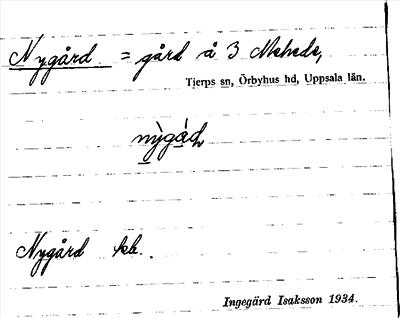 Nygård = gård å 3 Mehede,
Tierps sn, Örbyhus hd, Uppsala län.
nỳgáɖ
Nygård kk.
Ingegärd Isaksson 1934.